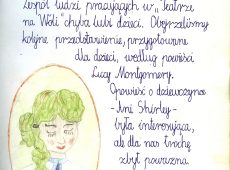 Zespół ludzi pracujących w „Teatrze
na Woli" chyba lubi dzieci. Obejrzeliśmy
kolejne przedstawienie, przygotowane
dla dzieci, według powieści
Lucy Montgomery.
Opowieść o dziewczynce
- Ani Shirley -
była interesująca,
ale dla nas trochę
zbyt poważna